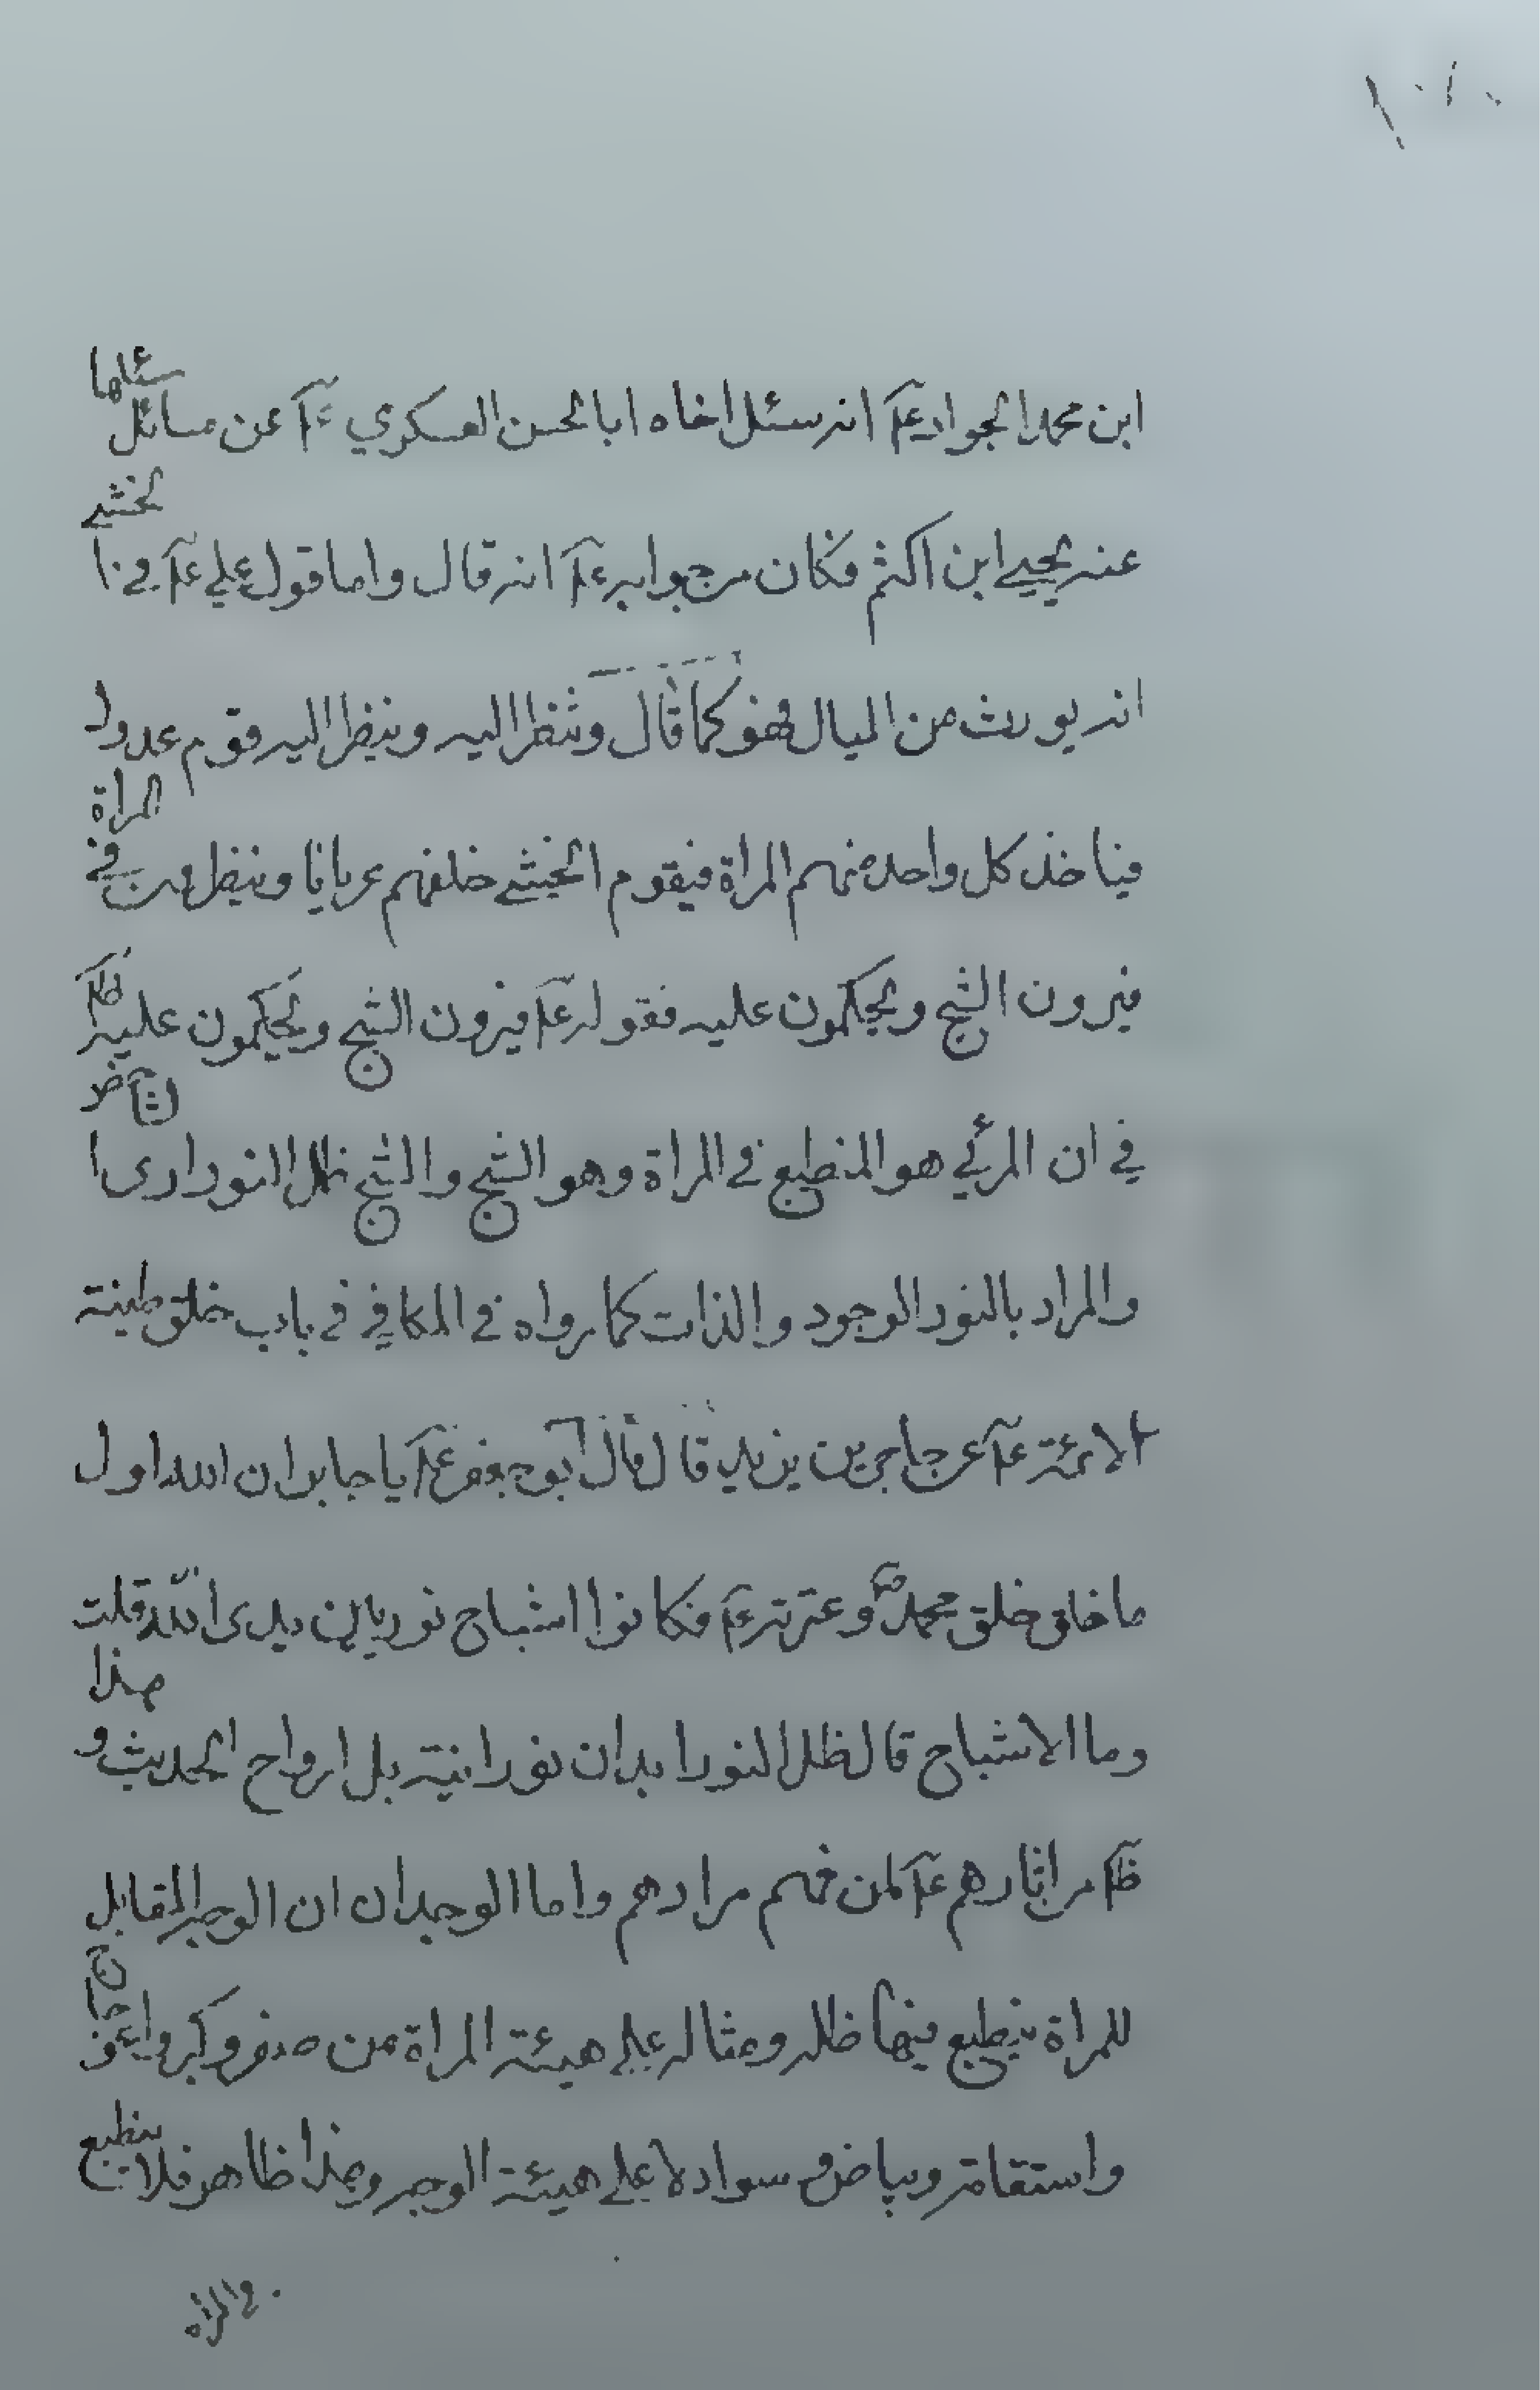 ابن محمد الجواد عم انه سئل اخاه ابا الحسن العسكري عم عن مسائل سئلها
عنه يحيي ابن اكثم فكان من جوابه عم انه قال واما قول علي عم في الخنثي
انه يورث من المبال فهو كما قال وينظر اليه وينظر اليه قوم عدول
فياخذ كل واحد منهم المراة فيقوم الخنثي خلفهم عريانا وينظرون في المراة
فيرون الشبح ويحكمون عليه فقوله عم فيرون الشبح ويحكمون عليه
في ان المرئي هو المنطبع في المراة وهو الشبح والشبح ظل النور اي
والمراد بالنور الوجود والذات كما رواه في الكافي في باب خلق طينة
الائمة عم عن جابر بن يزيد قال قال ابو جعفر عم يا جابر ان الله اول
ما خلق خلق محمد ص وعترته عم فكانوا اشباح نور بين يدي الله قلت
وما الاشباح قال ظل النور ابدان نورانية بل ارواح الحديث و هذا
من اثارهم عم لمن فهم مرادهم واما الوجدان ان الوجه المقابل
للمراة ينطبع فيها ظله ومثاله علي هيئة المراة من صغر وكبر واعوجاج
واستقامة وبياض وسواد لا علي هيئة الوجه وهذا ظاهر فلا ينطبع
في المراة